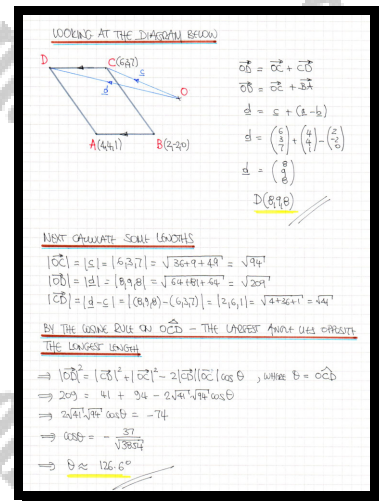 LOOKING AT THE DIAGRAM BELOW
D
C(6,3,7)
c
d
O
A(4,4,1)
B(2,-2,0)
OD = OC + CD
OD = OC + BA
d = c + (a - b)
d = (6 3 7) + (4 4 1) - (2 -2 0)
d = (8 9 8)
D(8,9,8)
NEXT CALCULATE SOME LENGTHS
|OC| = |c| = |6,3,7| = √36+9+49 = √94
|OD| = |d| = |8,9,8| = √64+81+64 = √209
|CD| = |d - c| = |(8,9,8) - (6,3,7)| = |2,6,1| = √4+36+1 = √41
BY THE COSINE RULE ON OĈD - THE LARGEST ANGLE LIES OPPOSITE
THE LONGEST LENGTH
⇒ |OD|² = |CD|² + |OC|² - 2|CD||OC| cos θ , WHERE θ = OĈD
⇒ 209 = 41 + 94 - 2√41 √94 cos θ
⇒ 2√41 √94 cos θ = -74
⇒ cos θ = - 37/√3854
⇒ θ ≈ 126.6°